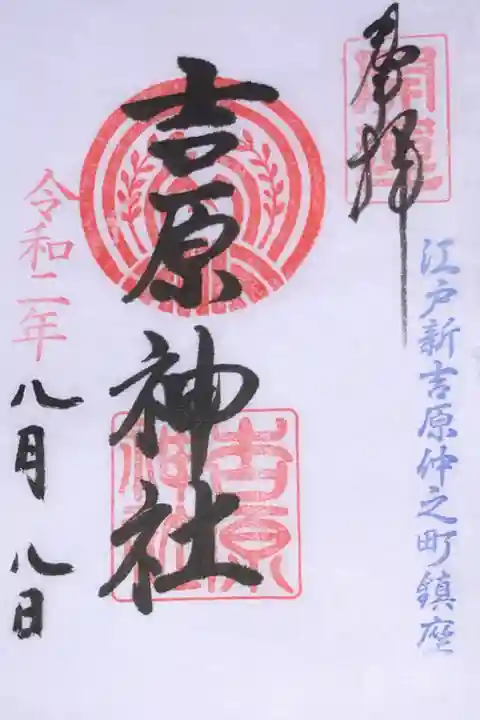 奉拝
開運
江戸新吉原仲之町鎮座
吉原神社
吉原神社
令和二年
八月八日